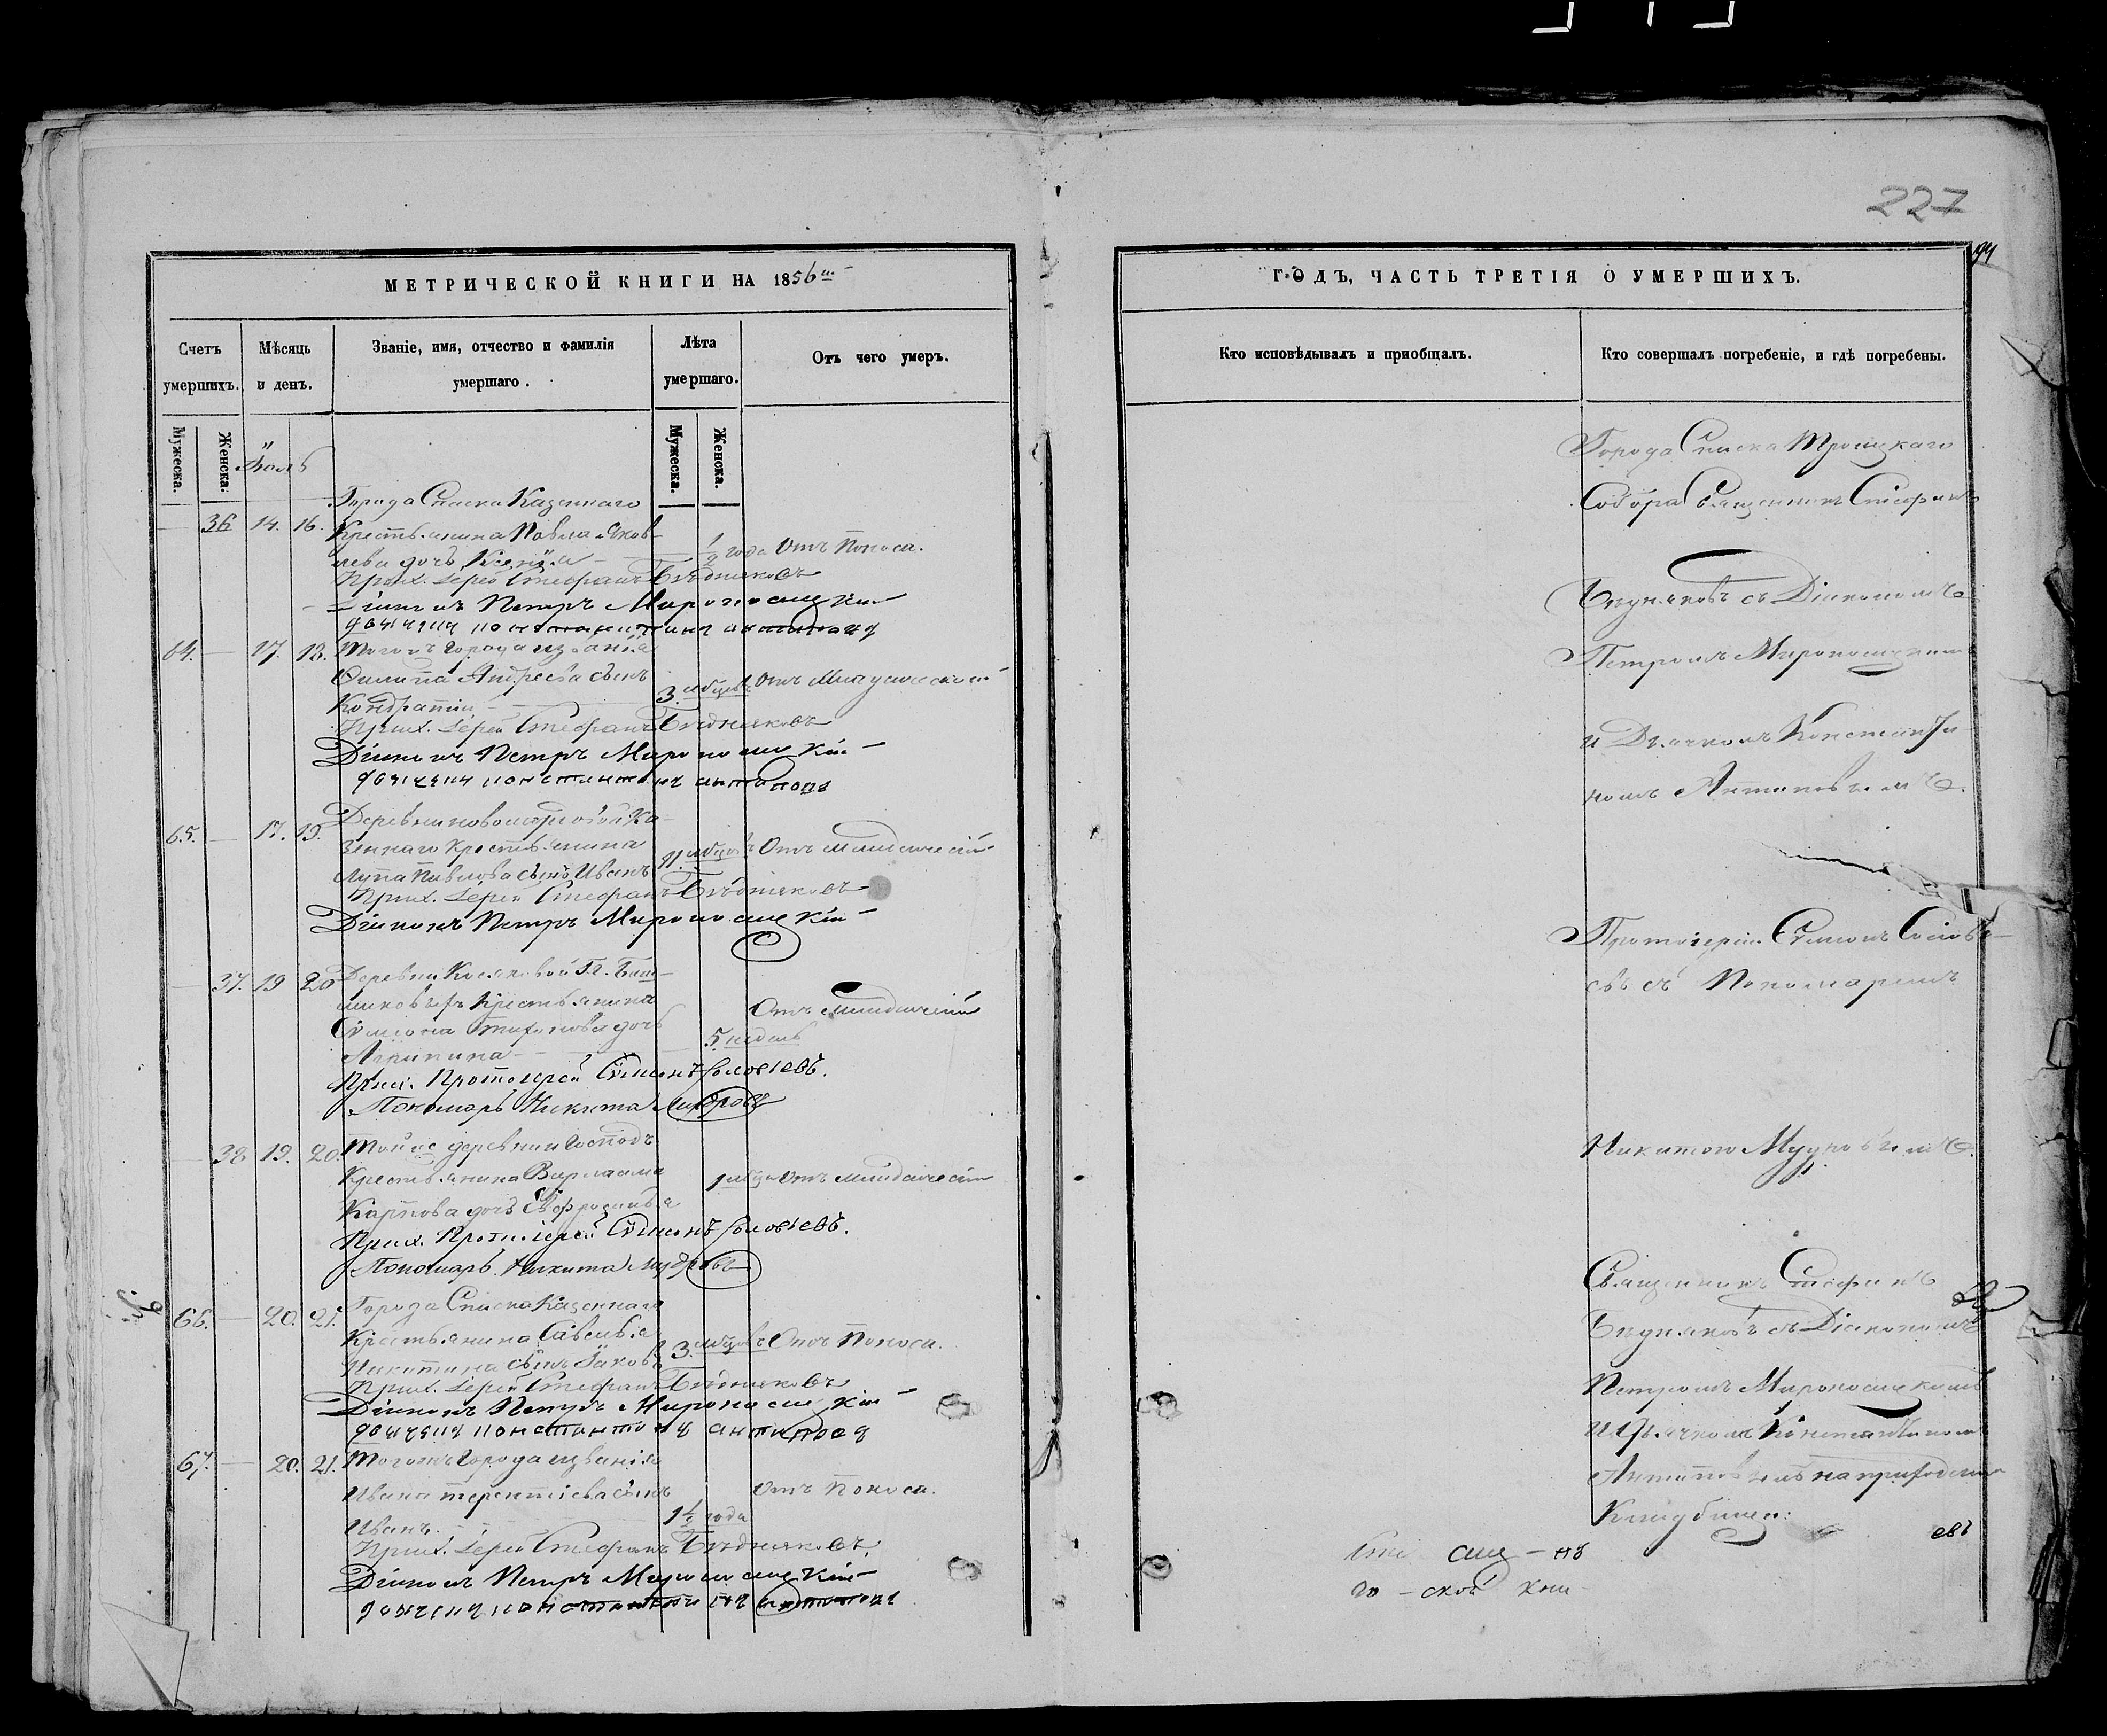 227
94
МЕТРИЧЕСКОЙ КНИГИ НА 1856й
ГОДЪ, ЧАСТЬ ТРЕТІЯ О УМЕРШИХЪ.
Счетъ умершихъ.
Мѣсяцъ и день.
Званіе, имя, отчество и фамилія умершаго.
Лѣта умершаго.
Отъ чего умеръ.
Кто исповѣдывалъ и приобщалъ.
Кто совершалъ погребеніе, и гдѣ погребены.
Мужеска.
Женска.
Мужеска.
Женска.
Іюль
Города Спаска Казеннаго
36 14. 16. Крестьянина Павла Яков-
лева дочь Ксенія 1/2 года Отъ Поноса.
Прих. Іерей Стефанъ Бѣдняковъ
Діаконъ Петръ Мироносицкій
дьячекъ константинъ антиповъ
64. 17. 18. Тогожъ города и званія
Филипа Андреева сынъ
Кондратій 3. мѣсцовъ Отъ Младенческой
Прих. Іерей Стефанъ Бѣдняковъ
Діаконъ Петръ Мироносицкій
дьячекъ константинъ антиповъ
65. 17. 19. Деревни новомордовой Ка-
зеннаго крестьянина
Лупа Павлова сынъ Иванъ 11. мѣсцовъ Отъ младенческой
Прих. Іерей Стефанъ Бѣдняковъ
Діаконъ Петръ Мироносицкій
37. 19 20 Деревни Кожаковой Гг.
крестьянина
Симеона дочь
Агрипина 5. недель Отъ младенческой
Прих. Протоіерей Симеонъ Соловьевъ.
Пономарь Никита Мудровъ
38 19. 20. Тойже деревни Господъ
Крестьянина Варлаама
Карпова дочь Евфросинья 1 мѣсца Отъ младенческой
Прих. Протоіерей Симеонъ Соловьевъ.
Пономарь Никита Мудровъ
66. 20. 21. Города Спаска Казеннаго
Крестьянина Савелья
Никитина сынъ Іаковъ 3. мѣсцовъ Отъ Поноса.
Прих. Іерей Стефанъ Бѣдняковъ
Діаконъ Петръ Мироносицкій
дьячекъ константинъ антиповъ
67. 20. 21. Тогожъ города и званія
Ивана терентіева сынъ
Иванъ. 1 1/2 года Отъ Поноса.
Прих. Іерей Стефанъ Бѣдняковъ
Діаконъ Петръ Мироносицкій
дьячекъ константинъ антиповъ
Города Спаска Троицкаго
Собора Священникъ Стефанъ
Бѣдняковъ съ Діакономъ
Петромъ Мироносицкимъ
и Дьячкомъ Константи
номъ Антиповымъ.
Протоіерей Симеонъ Соловь-
евъ съ Пономаремъ
Никитою Мудровымъ.
Священникъ Стефанъ
Бѣдняковъ съ Діакономъ
Петромъ Мироносицкимъ
и Дьячкомъ Константиномъ
Антиповымъ на приходскомъ
Кладбище.